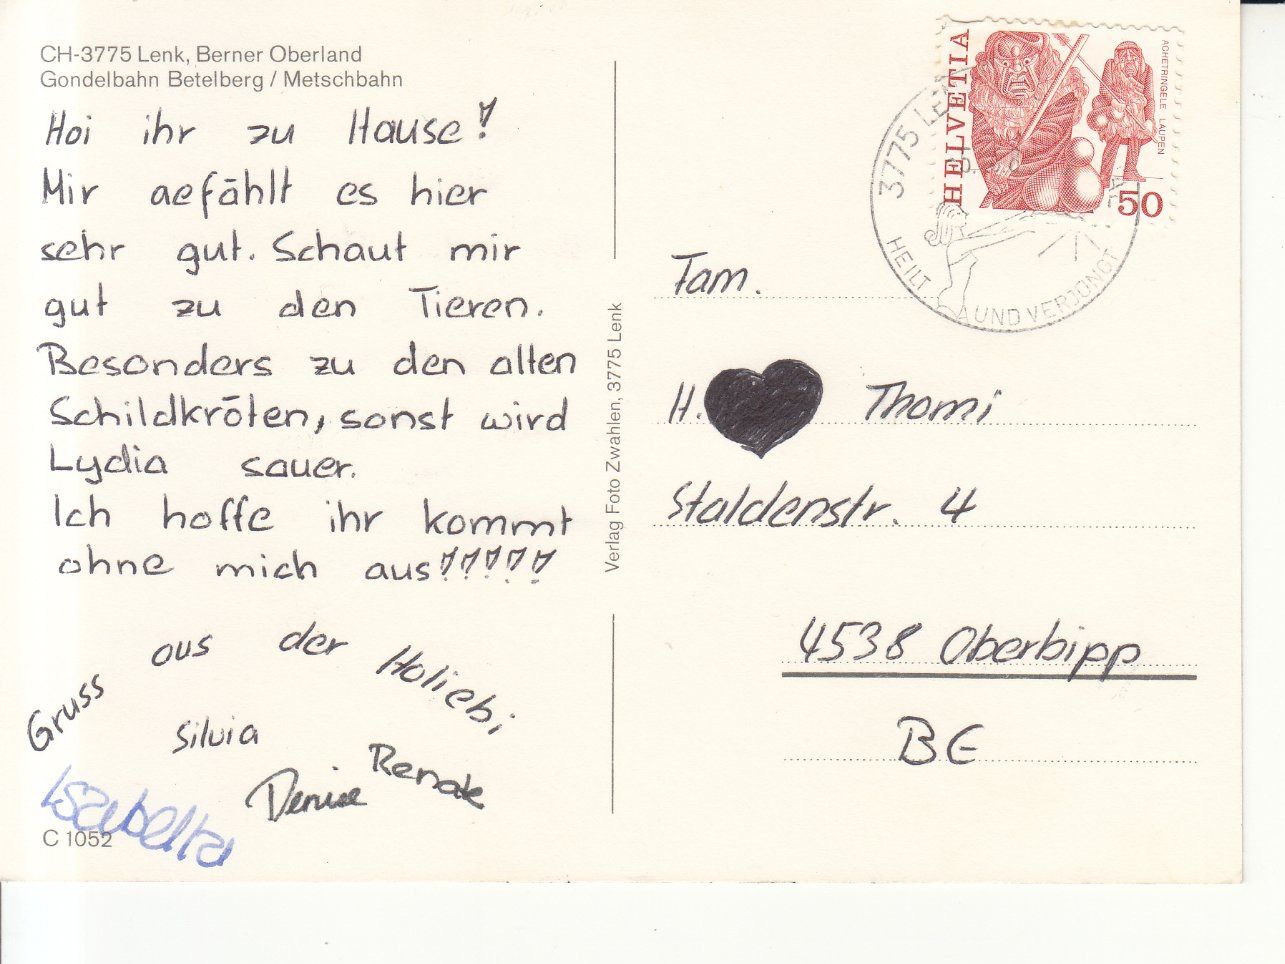 CH-3775 Lenk, Berner Oberland
Gondelbahn Betelberg / Metschbahn
Hoi ihr zu Hause!
Mir gefählt es hier
sehr gut. Schaut mir
gut zu den Tieren.
Besonders zu den alten
Schildkröten, sonst wird
Lydia sauer.
Ich hoffe ihr kommt
ohne mich aus!!!!!
Gruss aus der Holiebi
Silvia
Renate
Denise
Isabella
C 1052
Verlag Foto Zwahlen, 3775 Lenk
HELVETIA
ACHETRINGELE LAUPEN
50
3775 LENK
HEILT UND VERJÜNGT
Fam.
H. Thomi
Staldenstr. 4
4538 Oberbipp
BE